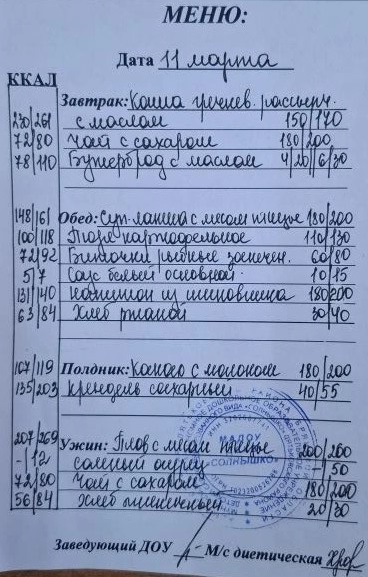 МЕНЮ:
Дата 11 марта
ККАЛ
Завтрак: Каша гречнев. рассыпч.
230/261 с маслом 150/170
72/80 Чай с сахаром 180/200
78/110 Бутерброд с маслом 4/20/6/30
148/161 Обед: Суп-лапша с мясом птицы 180/200
100/118 Пюре картофельное 110/130
72/92 Биточки рыбные запечен. 60/80
5/7 Соус белый основной 10/15
131/140 напиток из шиповника 180/200
63/84 Хлеб ржаной 30/40
107/119 Полдник: Какао с молоком 180/200
135/203 крендель сахарный 40/55
207/269 Ужин: Плов с мясом птицы 200/260
-/12 соленый огурец -/50
72/80 Чай с сахаром 180/200
56/84 Хлеб пшеничный 20/30
МАДОУ
«СОЛНЫШКО»
Заведующий ДОУ М/с диетическая